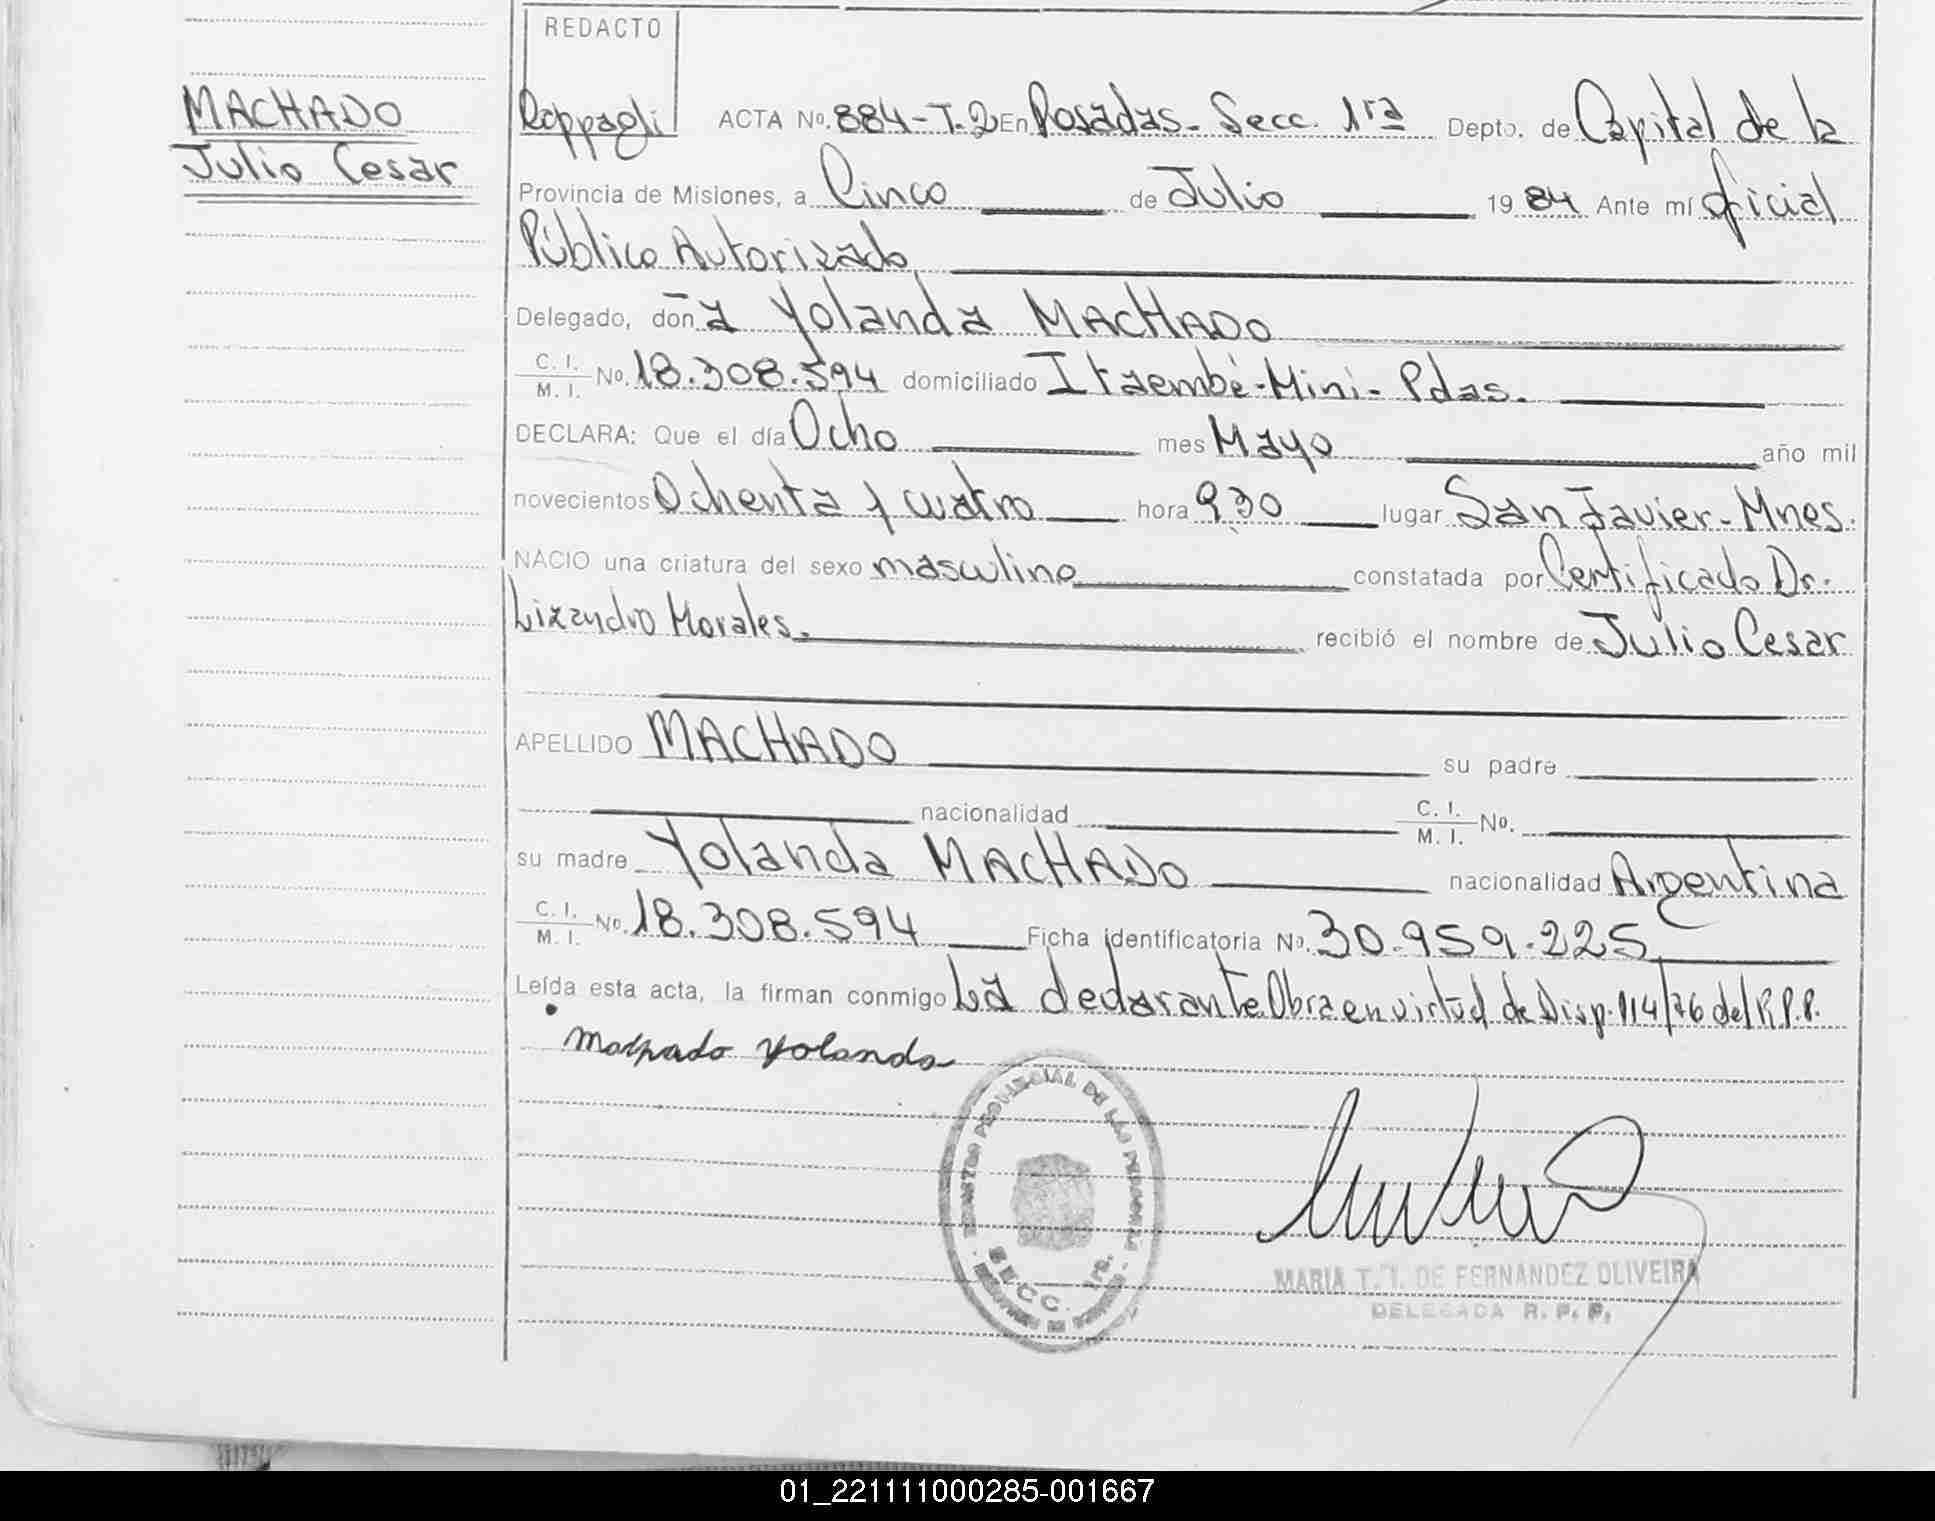 REDACTO
MACHADO
Julio Cesar
Roppagli ACTA Nº. 884-T-2 En Posadas- Secc. 1ra Depto. de Capital de la
Provincia de Misiones, a Cinco de Julio 1984 Ante mí Oficial
Público Autorizado
Delegado, doña Yolanda MACHADO
C. I. M. I. Nº. 18.308.594 domiciliado Itaembé-Mini- Pdas.
DECLARA: Que el día Ocho mes Mayo año mil
novecientos Ochenta y cuatro hora 9,30 lugar San Javier-Mnes.
NACIO una criatura del sexo masculino constatada por Certificado Dr.
Lizandro Morales. recibió el nombre de Julio Cesar
APELLIDO MACHADO su padre
nacionalidad C. I. M. I. Nº.
su madre Yolanda MACHADO nacionalidad Argentina
C. I. M. I. Nº. 18.308.594 Ficha identificatoria Nº. 30.959.225
Leída esta acta, la firman conmigo La declarante. Obra en virtud de Disp. 114/76 del R.P.P.
Machado Yolanda
REGISTRO PROVINCIAL DE LAS PERSONAS
SECC. 1ra.
MARIA T. I. DE FERNANDEZ OLIVEIRA
DELEGADA R. P. P.
01_221111000285-001667